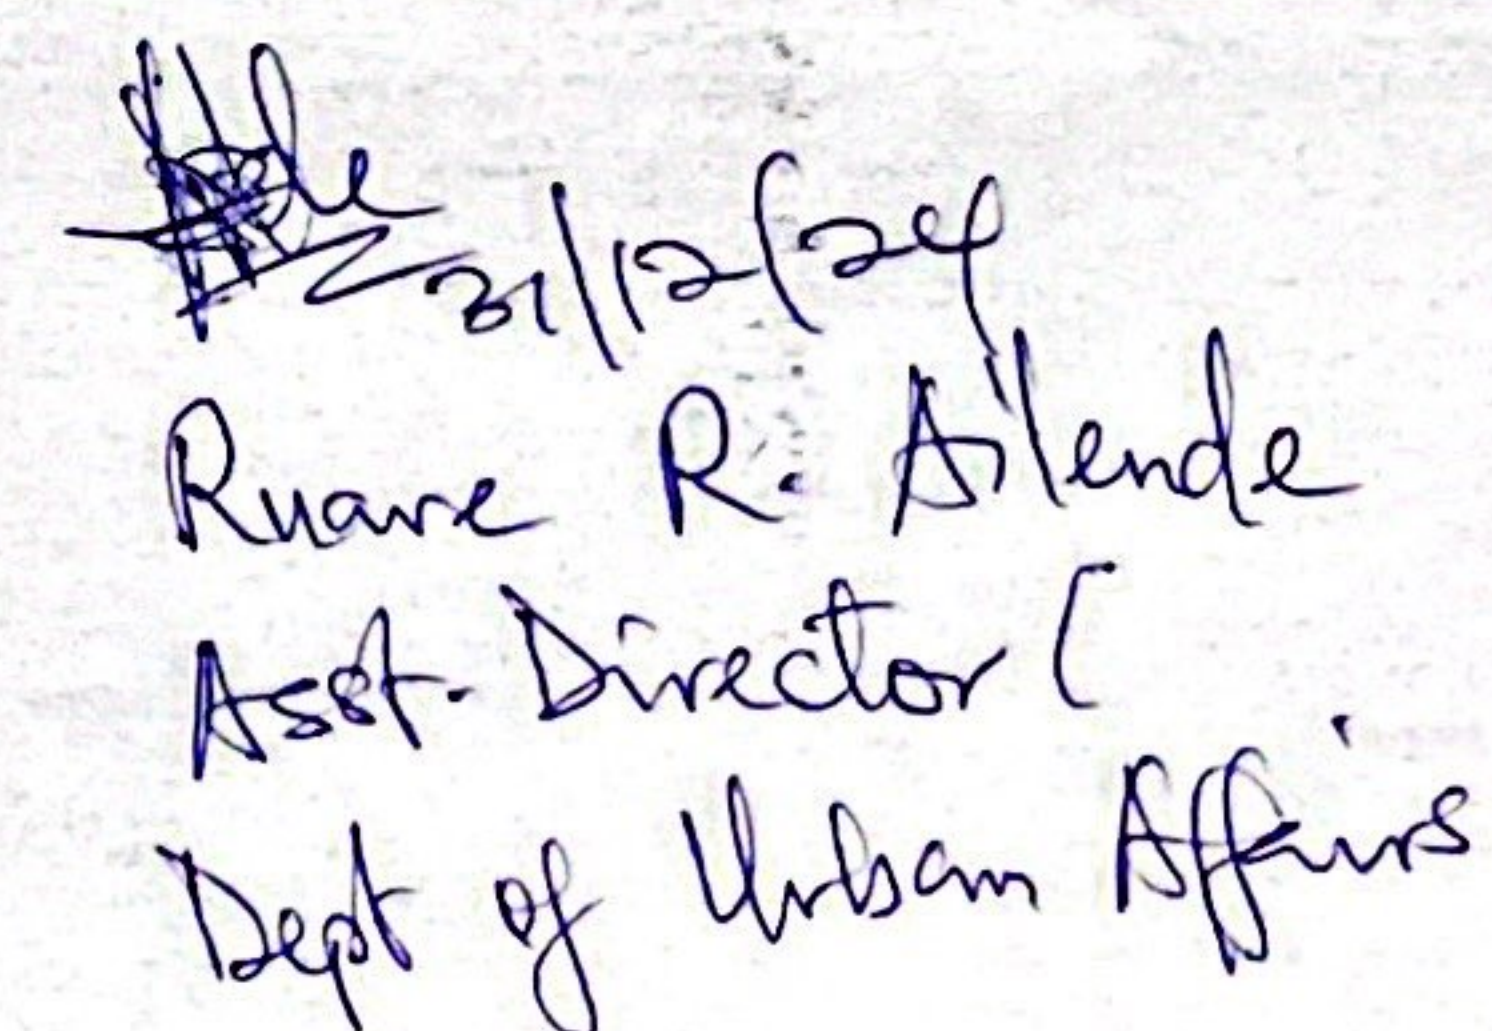 31/12/24
Ruane R. Ailende
Asst. Director (
Dept of Urban Affairs